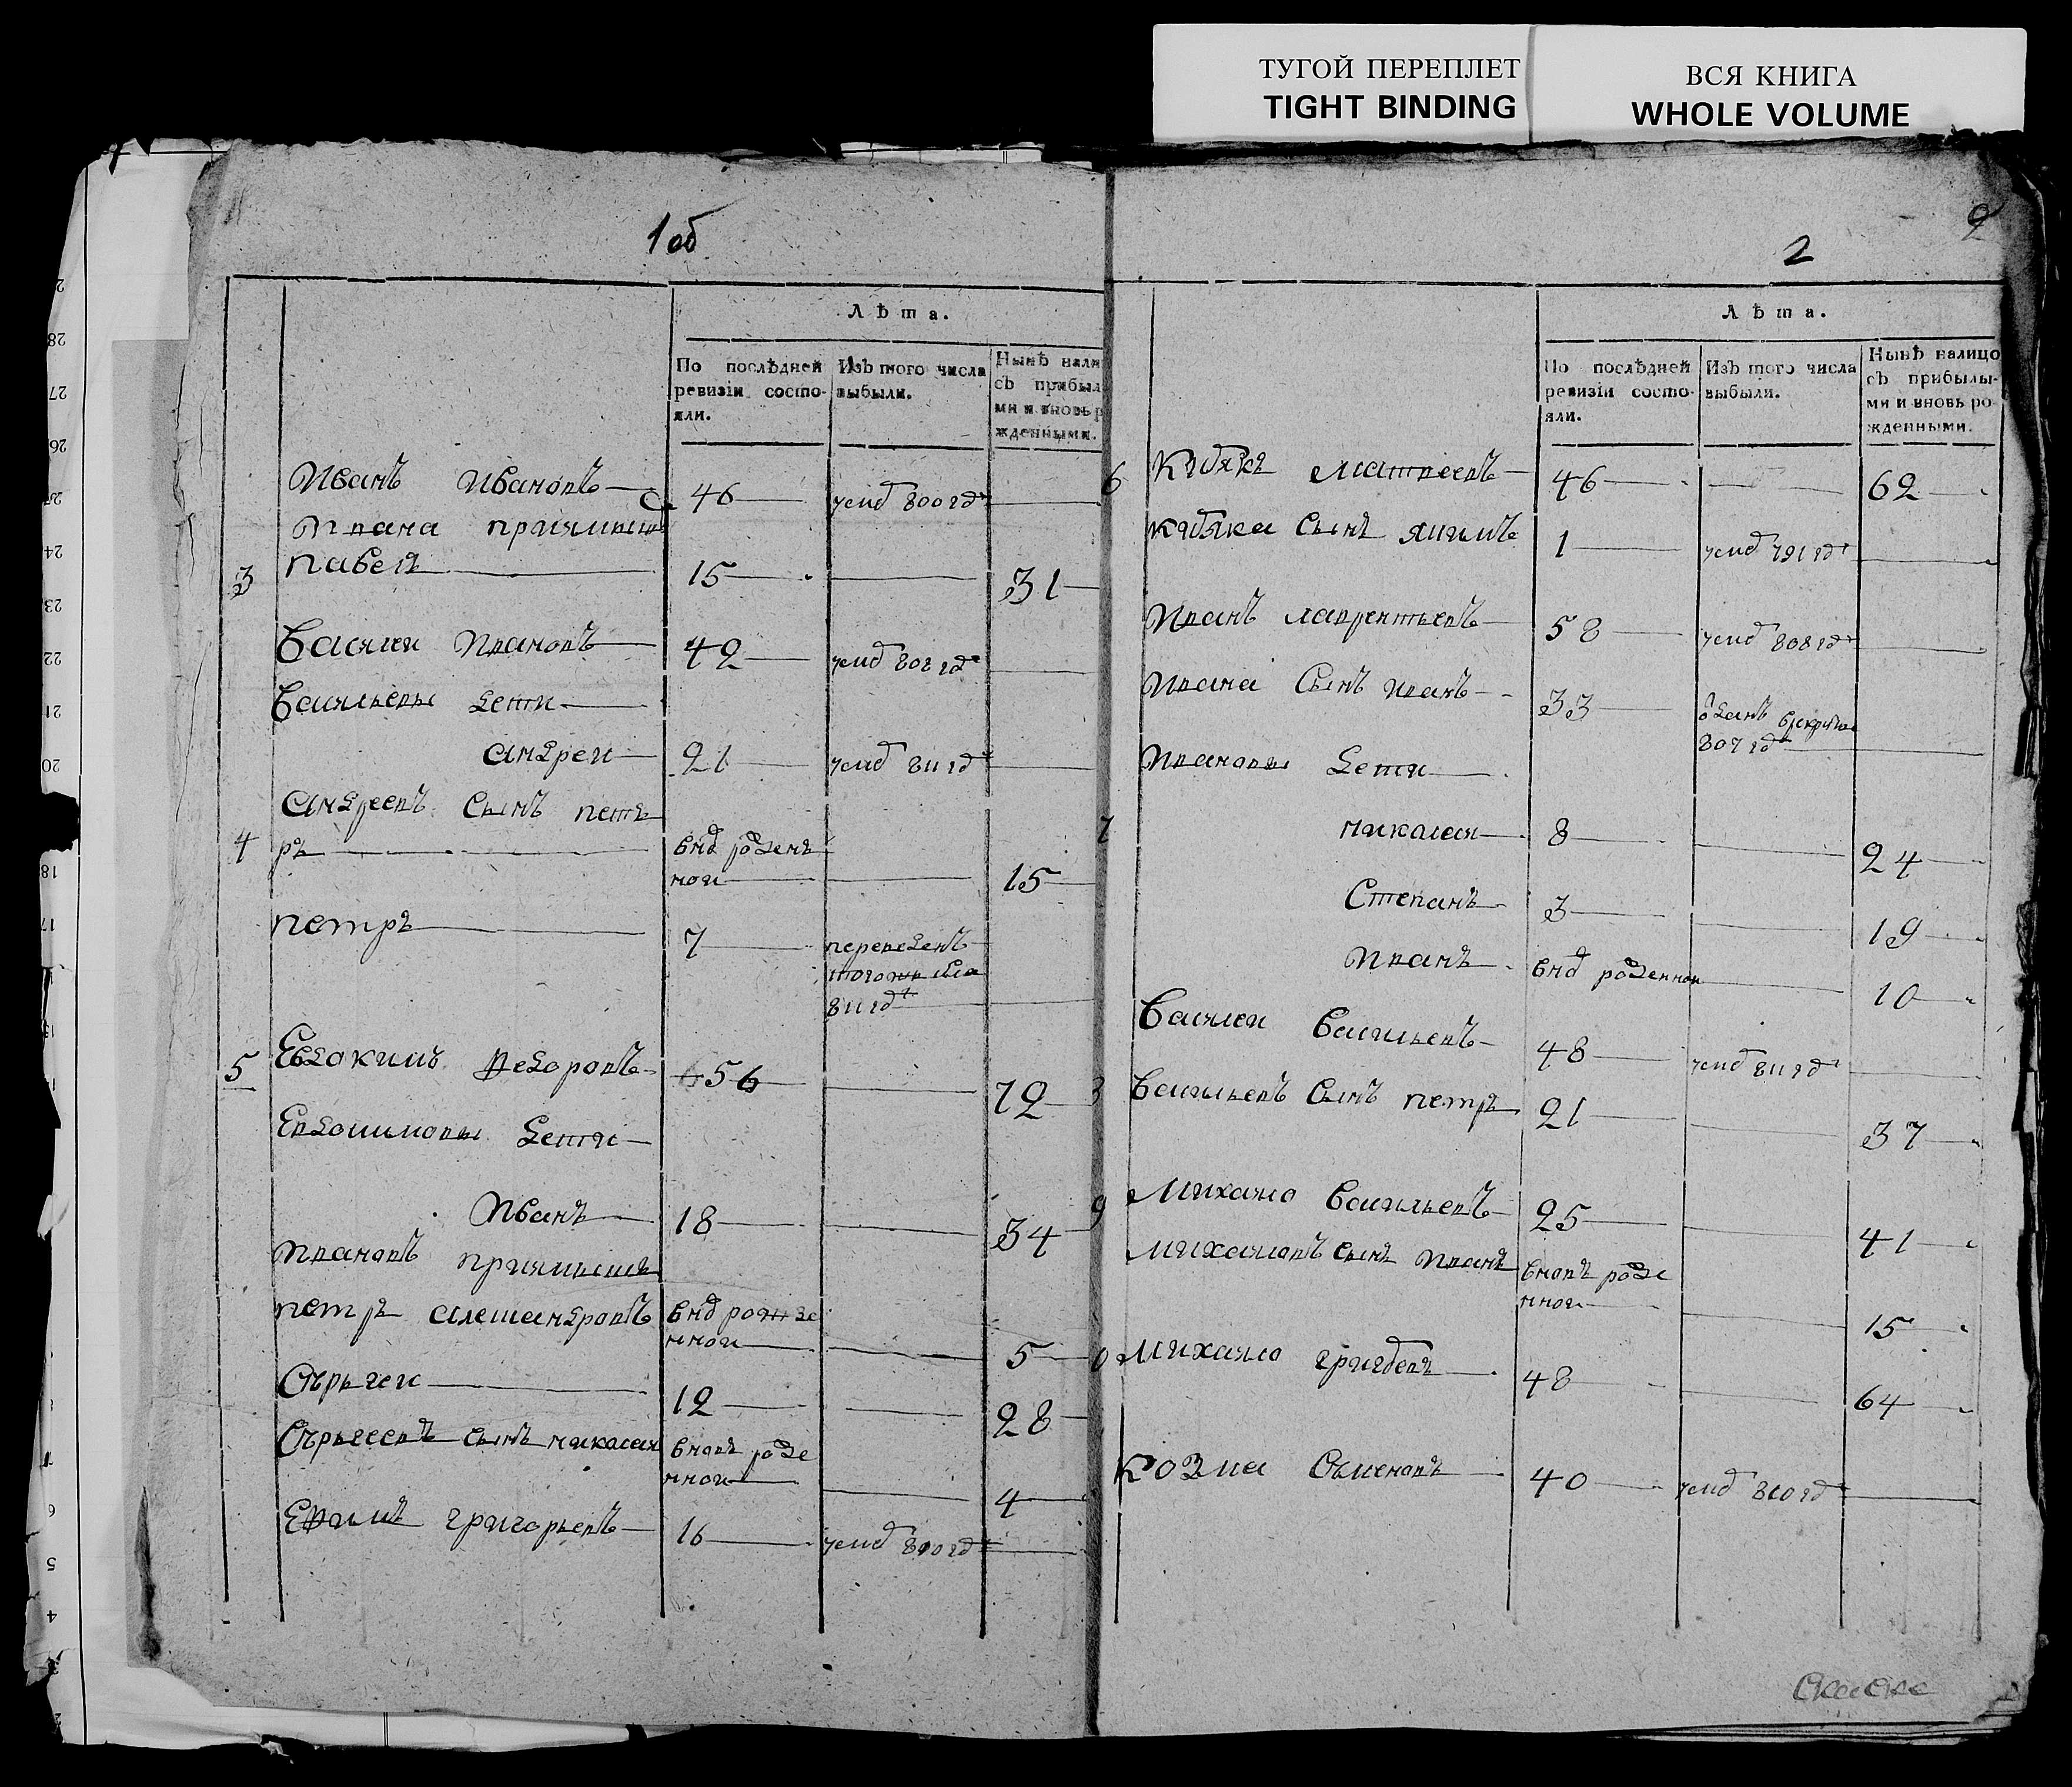 ТУГОЙ ПЕРЕПЛЕТ
TIGHT BINDING
ВСЯ КНИГА
WHOLE VOLUME
1об
Лѣта.
По послѣдней ревизіи состо-
яли.
Изъ того числа
выбыли.
Нынѣ нали
съ прибыл
ми и вновь р
жденными.
Иванъ Ивановъ 46 умѣ 800 гдꙋ
Ивана приямышъ
3 павелъ 15 31
Василеи Ивановъ 42 умѣ 808 гдꙋ
Васильевы дети
андреи 21 умѣ 811 гд
андреевъ сынъ петъ
4 ръ внѡ рожденъ
нои 15
петръ 7 переведенъ
811 гд
5 Евдокимъ Федоровъ 56 72
Евдокимовы дети
Иванъ 18 34
Ивановъ приямышъ
петръ александровъ внѡ рожде
ннои 5
Сергеи 12 28
Сергеевъ сынъ николаи вновь рожде
ннои 4
Ефимъ григорьевъ 16 умѣ 810 гд
2
9
Лѣта.
По послѣдней
ревизіи состо-
яли.
Изъ того числа
выбыли.
Нынѣ налицо
съ прибылы-
ми и вновь ро-
жденными.
6 матвеевъ 46 62
сынъ якимъ 1 умѣ 791 гд
Иванъ лаврентьевъ 58 умѣ 808 гд
Ивана сынъ иванъ 33 ѿданъ врекруты
807 гд
Ивановы дети
7 николаи 8 24
Степанъ 3 19
Иванъ внѡ рожденнои 10
Василеи Васильевъ 48 умѣ 811 гд
8 Васильевъ сынъ петръ 21 37
9 Михаило Васильевъ 25 41
михаиловъ сынъ иванъ вновь рожде
ннои 15
0 Михаило 48 64
Козма Семеновъ 40 умѣ 810 гд